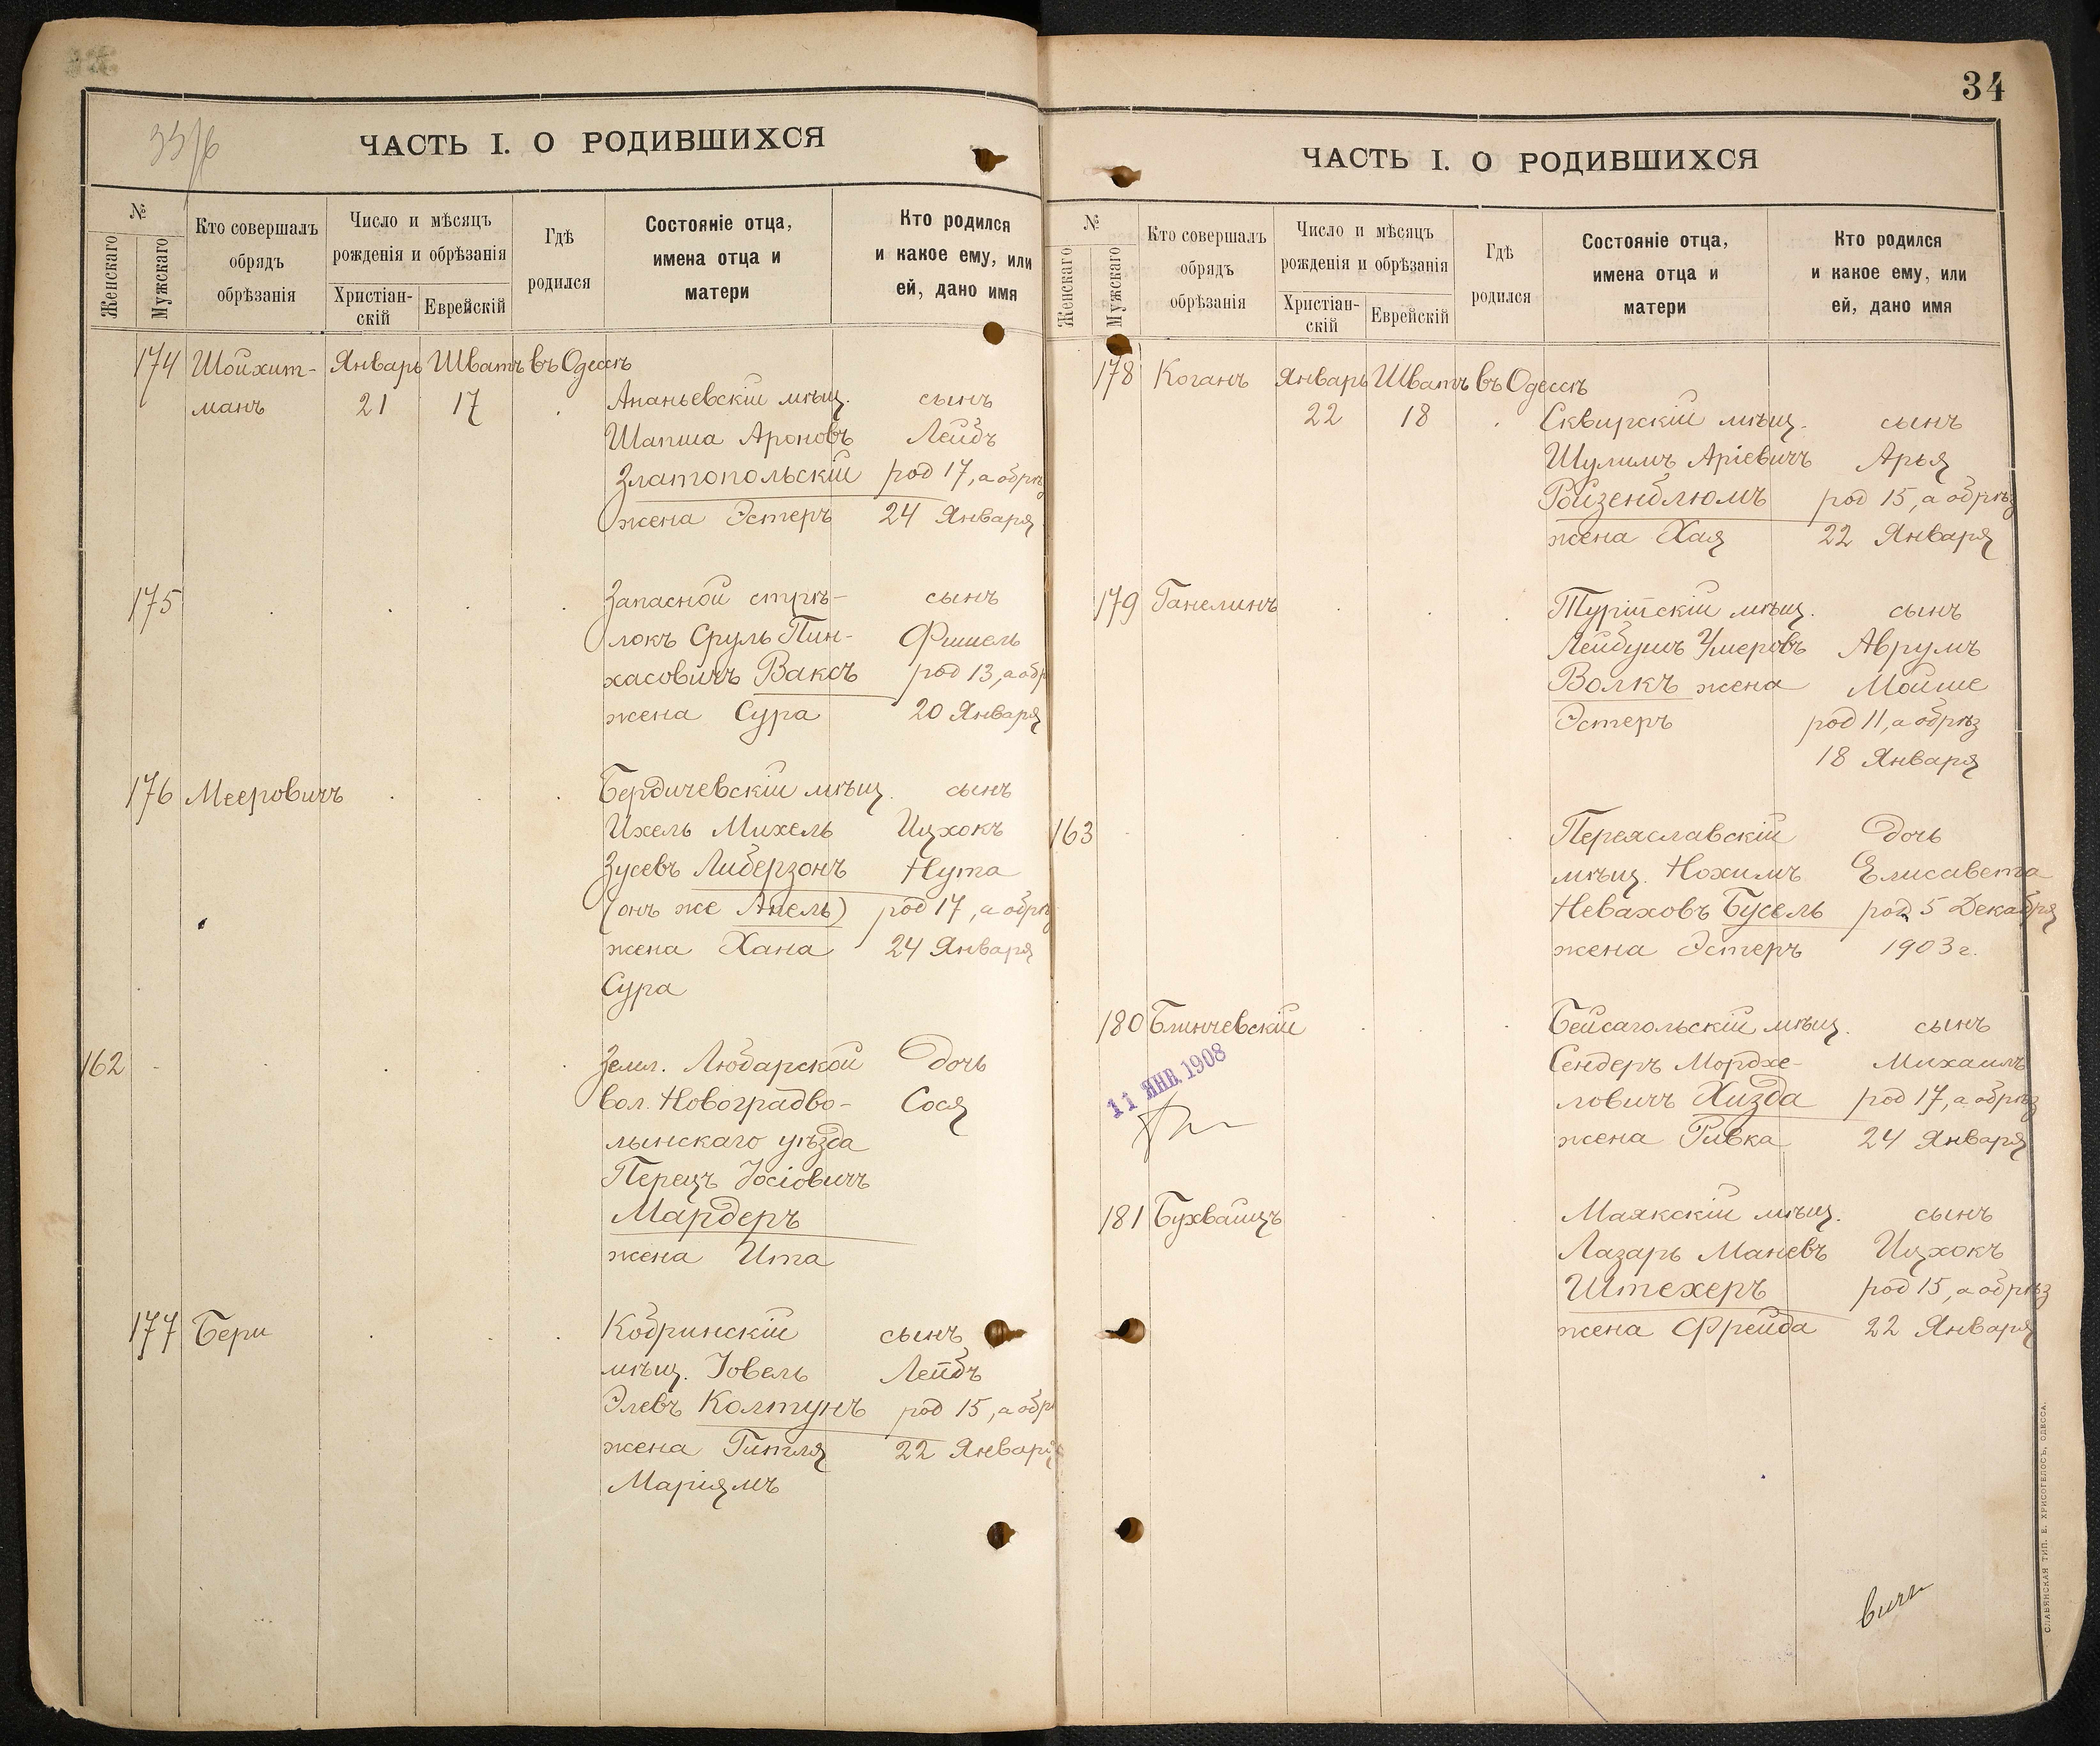 33/6
ЧАСТЬ I. О РОДИВШИХСЯ
№
Женскаго
Мужскаго
Кто совершалъ
обрядъ
обрѣзанія
Число и мѣсяцъ
рожденія и обрѣзанія
Христіан-
скій
Еврейскій
Гдѣ
родился
Состояніе отца,
имена отца и
матери
Кто родился
и какое ему, или
ей, дано имя
174 Шойхит- Январь Шватъ въ Одессѣ
манъ 21 17 Ананьевскій мѣщ. сынъ
Шапша Ароновъ Лейбъ
Златопольскій род 17, а обрѣз
жена Эстеръ 24 Января
175 Запасной стрѣ- сынъ
локъ Сруль Пин- Фишель
хасовичъ Ваксъ род 13, а обр
жена Сура 20 Января
176 Мееровичъ Бердичевскій мѣщ. сынъ
Ихель Михель Ицхокъ
Зусевъ Либерзонъ Нута
(онъ же Апель) род 17, а обрѣз
жена Хана 24 Января
Сура
162 Земл. Любарской Дочь
вол. Новоградво- Сося
лынскаго уѣзда
Перецъ Іосіовичъ
Мардеръ
жена Ита
177 Бери Кобринскій сынъ
мѣщ. Іовель Лейбъ
Элевъ Колтунъ род 15, а обр
жена Гитля 22 Января
Маріямъ
34
ЧАСТЬ I. О РОДИВШИХСЯ
№
Женскаго
Мужскаго
Кто совершалъ
обрядъ
обрѣзанія
Число и мѣсяцъ
рожденія и обрѣзанія
Христіан-
скій
Еврейскій
Гдѣ
родился
Состояніе отца,
имена отца и
матери
Кто родился
и какое ему, или
ей, дано имя
178 Коганъ Январь Шватъ въ Одессѣ
22 18 Сквирскій мѣщ. сынъ
Шулимъ Аріевичъ Арья
Ройзенблюмъ род 15, а обрѣз
жена Хая 22 Января
179 Ганелинъ Турійскій мѣщ. сынъ
Лейбушъ Умеровъ Аврумъ
Волкъ жена Мойше
Эстеръ род 11, а обрѣз
18 Января
163 Переяславскій Дочь
мѣщ. Нохимъ Елисавета
Неваховъ Бусель род 5 Декабря
жена Эстеръ 1903 г.
180 Блинчевскій Бейсагольскій мѣщ. сынъ
11 ЯНВ. 1908
Сендеръ Мордхе- Михаилъ
ловичъ Хизда род 17, а обрѣз
жена Ривка 24 Января
181 Бухвайцъ Маякскій мѣщ. сынъ
Лазарь Маневъ Ицхокъ
Штехеръ род 15, а обрѣз
жена Фрейда 22 Января
СЛАВЯНСКАЯ ТИП. Е. ХРИСОГЕЛОСЪ, ОДЕССА.